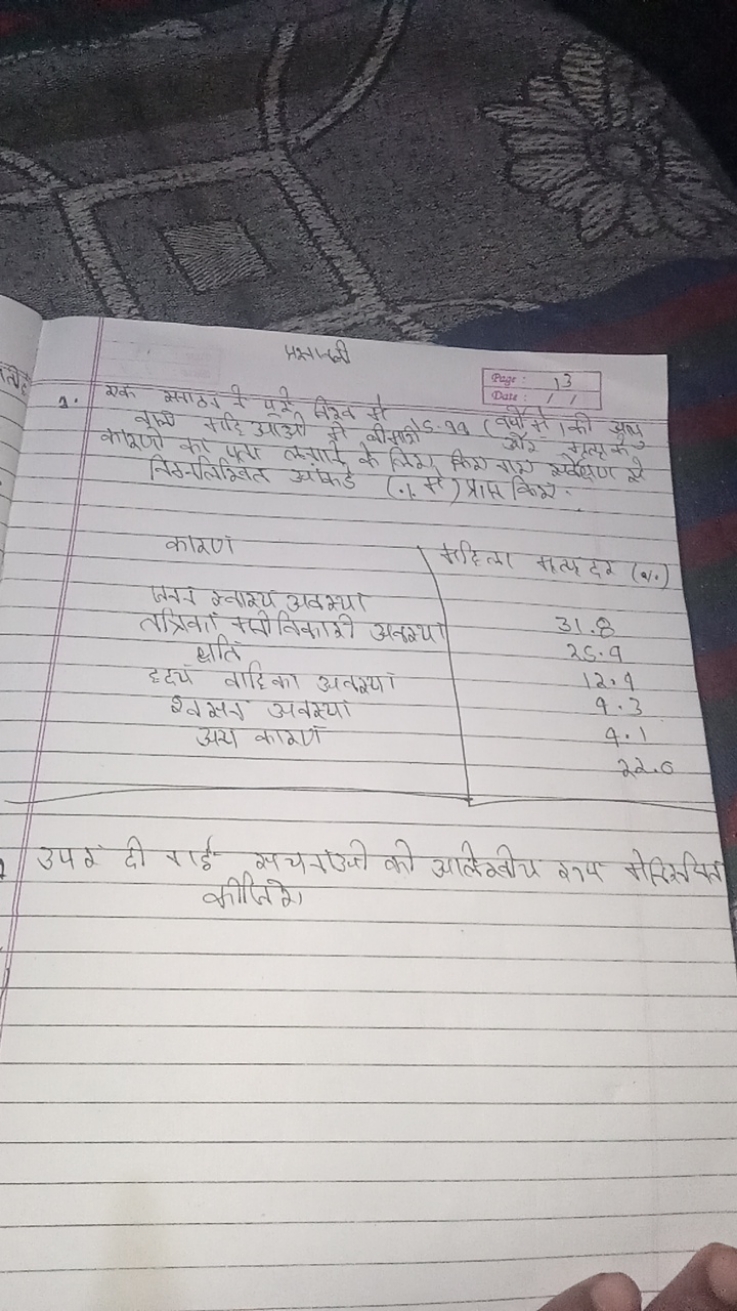 प्रश्नावली
Page: 13
Date: / /
1. एक संगठन ने पूरे विश्व में 15-44 (वर्षों में) की आयु
वाली महिलाओं में बीमारी और मृत्यु के
कारणों का पता लगाने के लिए किए गए सर्वेक्षण से
निम्नलिखित आंकड़े (% में) प्राप्त किए.
कारण महिला मृत्यु दर (%)
जनन स्वास्थ्य अवस्था
तंत्रिका मनोविकारी अवस्था 31.8
क्षति 25.4
हृदय वाहिका अवस्था 12.4
श्वसन अवस्था 4.3
अन्य कारण 4.1
22.0
उपर दी गई सूचनाओं को आलेखीय रूप में
कीजिये।